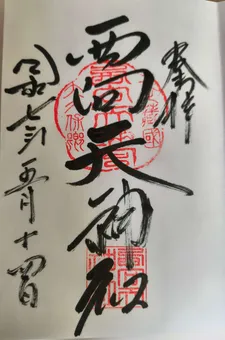 奉拝
西向天神社
令和七年五月十四日